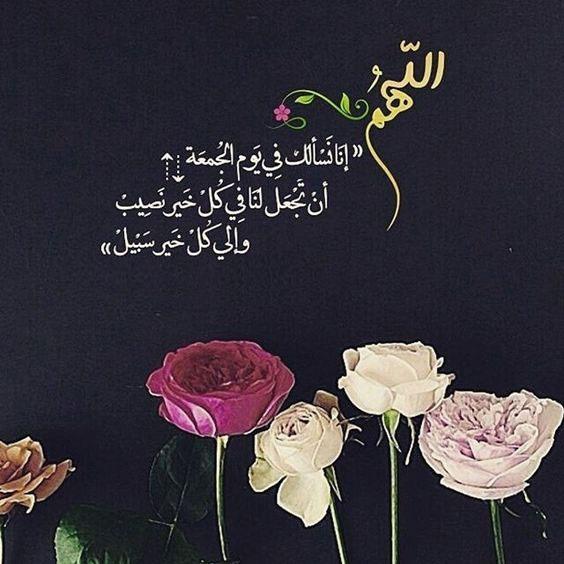 اللّهُم
« إنا نَسألك فِي يَوم الجُمعَة
أنْ تَجْعَل لنَا فِي كُلْ خَير نَصِيبْ
وإلي كُلْ خَير سَبِيلْ »